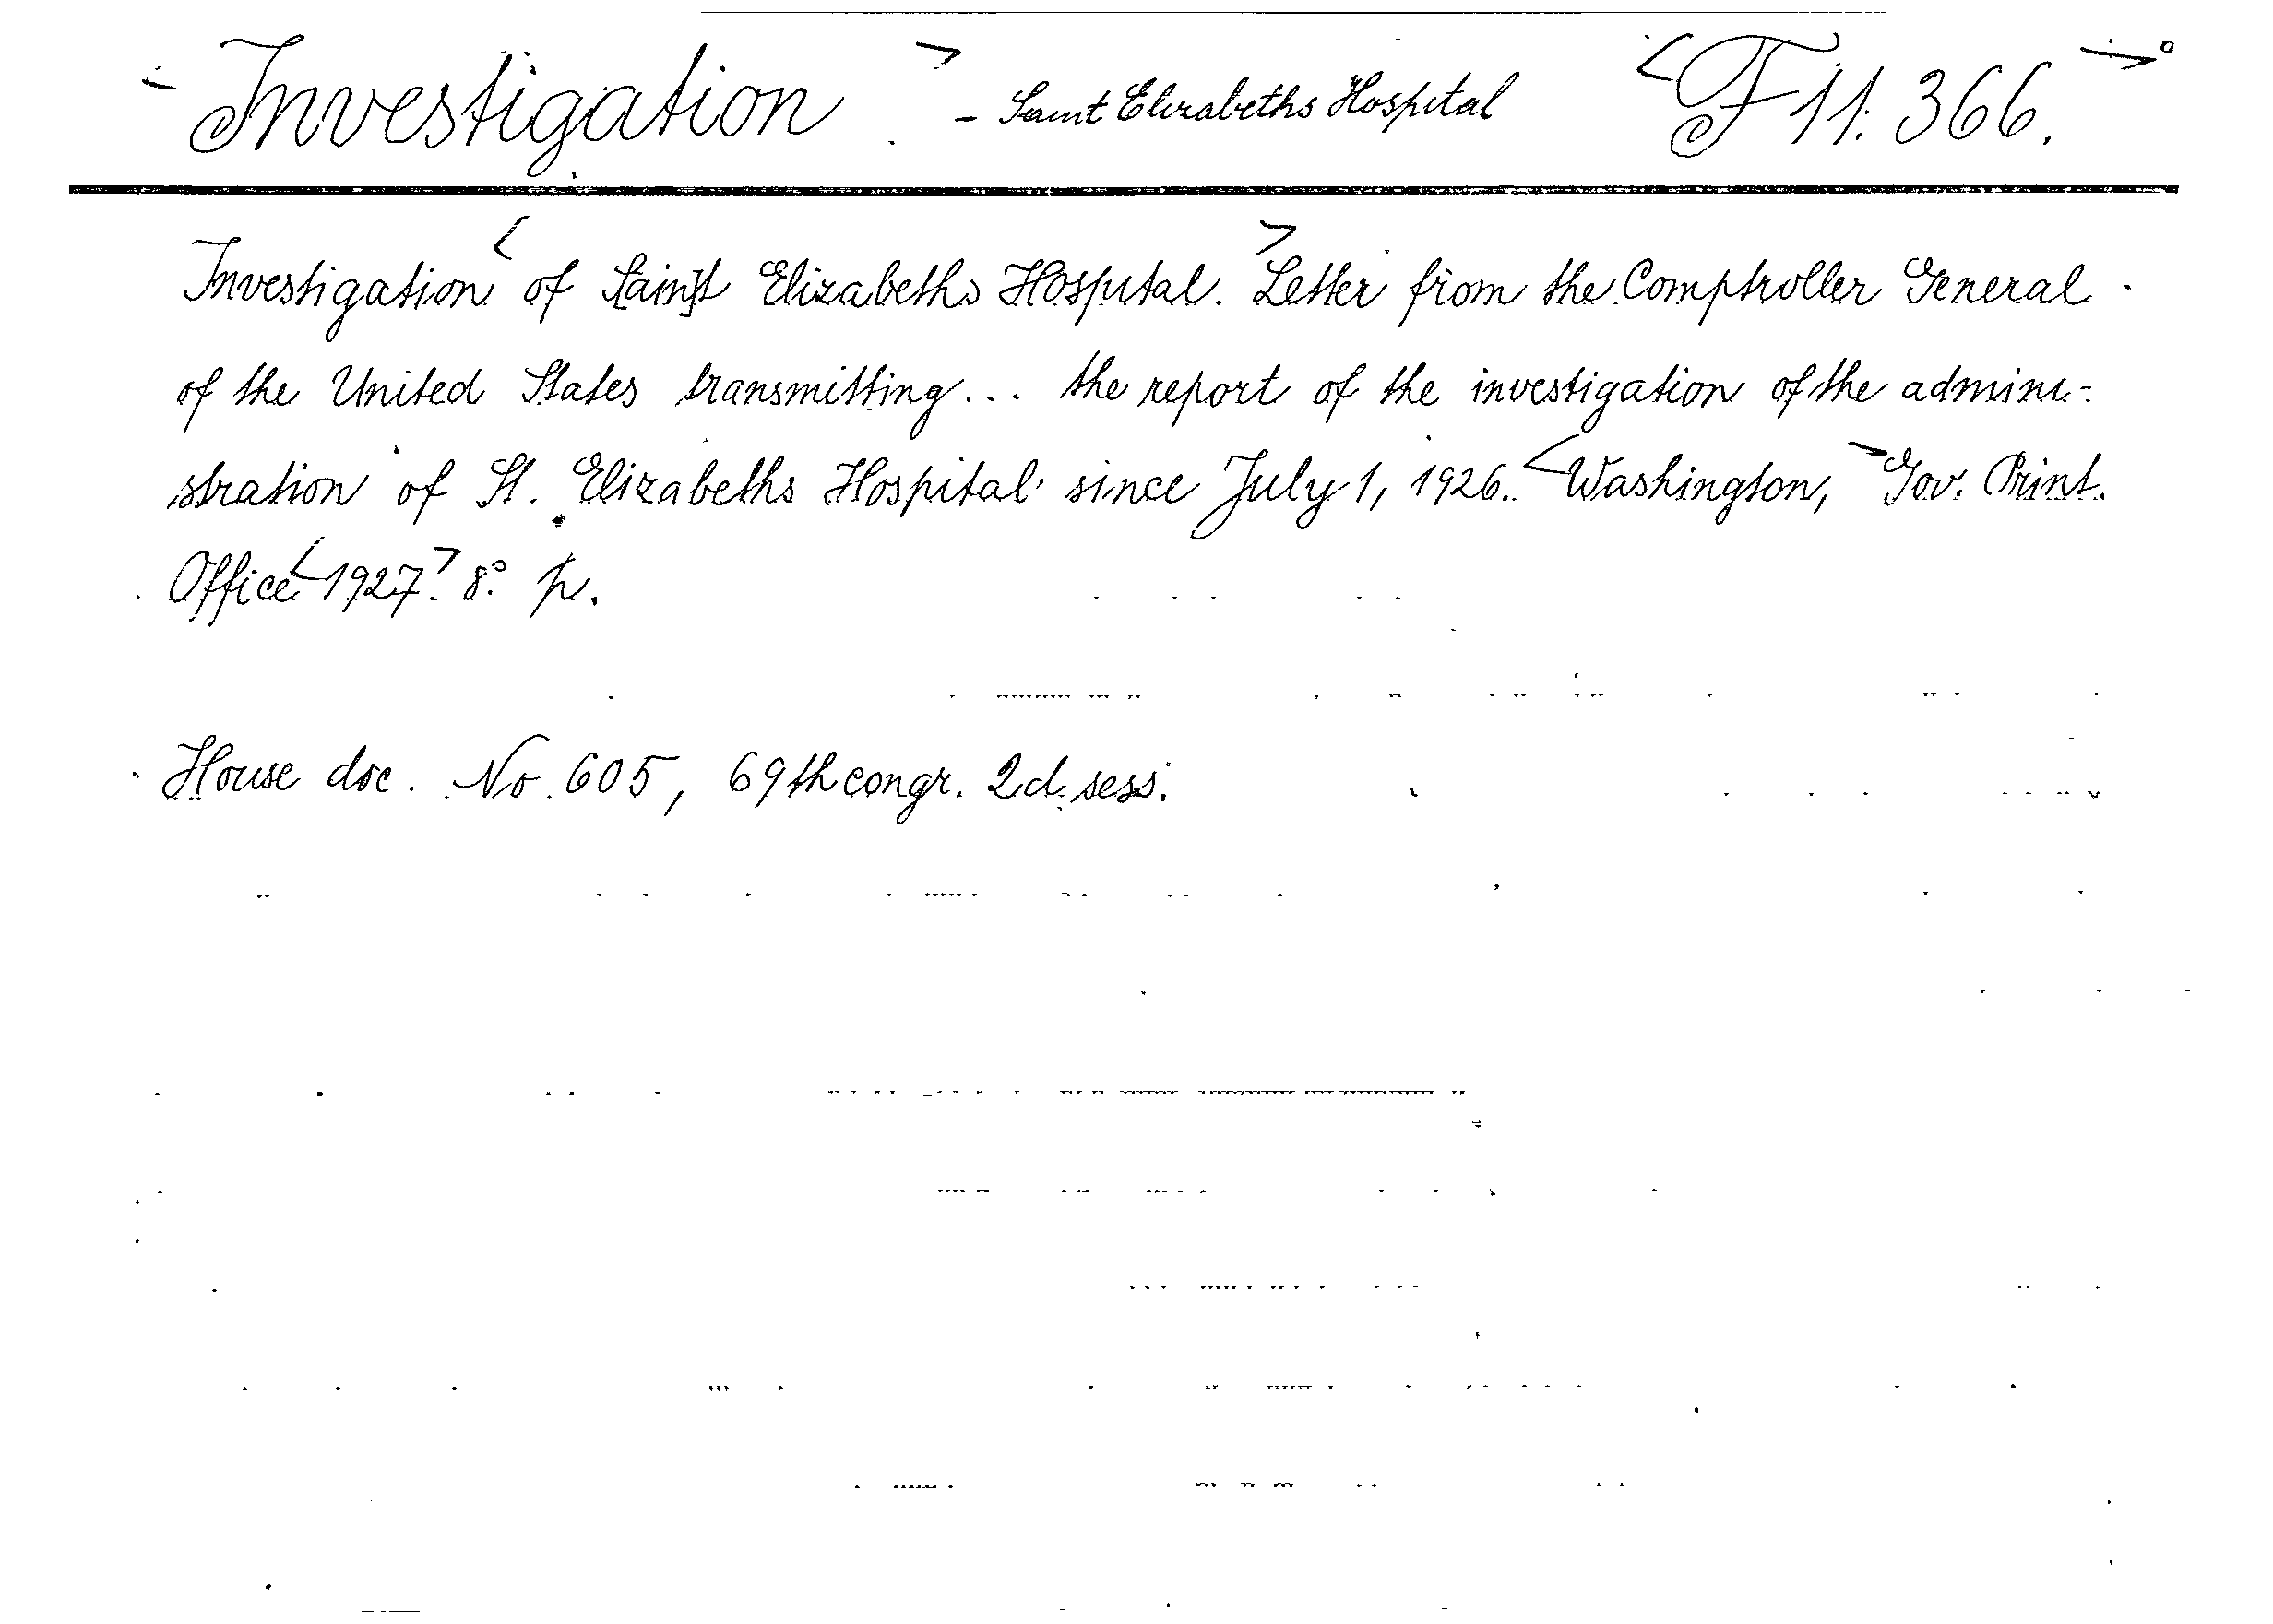 Investigation - Saint Elizabeths Hospital F 11. 366.
Investigation of [Sain]t Elizabeths Hospital. Letter from the Comptroller General
of the United States transmitting... the report of the investigation of the admini-
stration of St. Elizabeths Hospital since July 1, 1926. Washington, Gov. Print.
Office 1927. 8° p.
House doc. No. 605, 69th congr. 2d. sess.